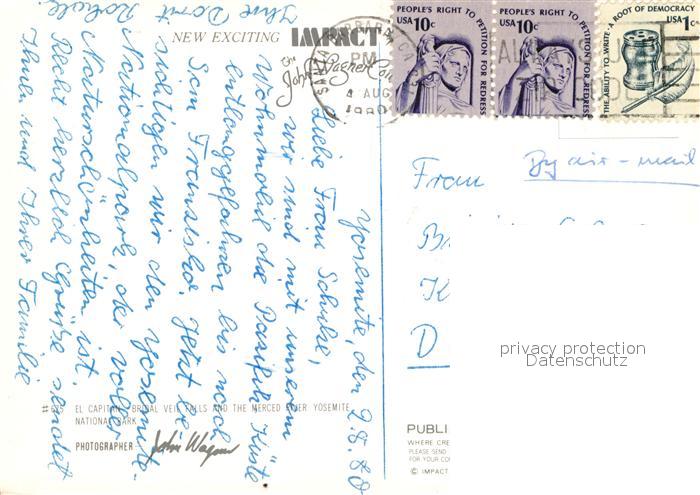 NEW EXCITING IMPACT
by John Wagner
SANTA BARBARA CA
PM
AUG
1980
PEOPLE'S RIGHT TO PETITION FOR REDRESS
USA 10c
PEOPLE'S RIGHT TO PETITION FOR REDRESS
USA 10c
THE ABILITY TO WRITE · A ROOT OF DEMOCRACY
USA 1c
Yosemite, den 9.8.80
Liebe Frau Schulze,
wir sind mit unserem
Wohnmobil die Pazifik Küste
entlanggefahren bis nach
San Franzisko. Jetzt be-
sichtigen wir den Yosemite-
Nationalpark, der voller
Naturschönheiten ist.
Recht herzliche Grüße sendet
Ihnen und Ihrer Familie
Ihre Dorit
By air-mail
Frau
D
privacy protection
Datenschutz
EL CAPITAN, BRIDAL VEIL FALLS AND THE MERCED RIVER YOSEMITE
NATIONAL PARK
PHOTOGRAPHER John Wagner
PUBLI
WHERE CRE
PLEASE SEND
FOR YOUR CO
© IMPACT